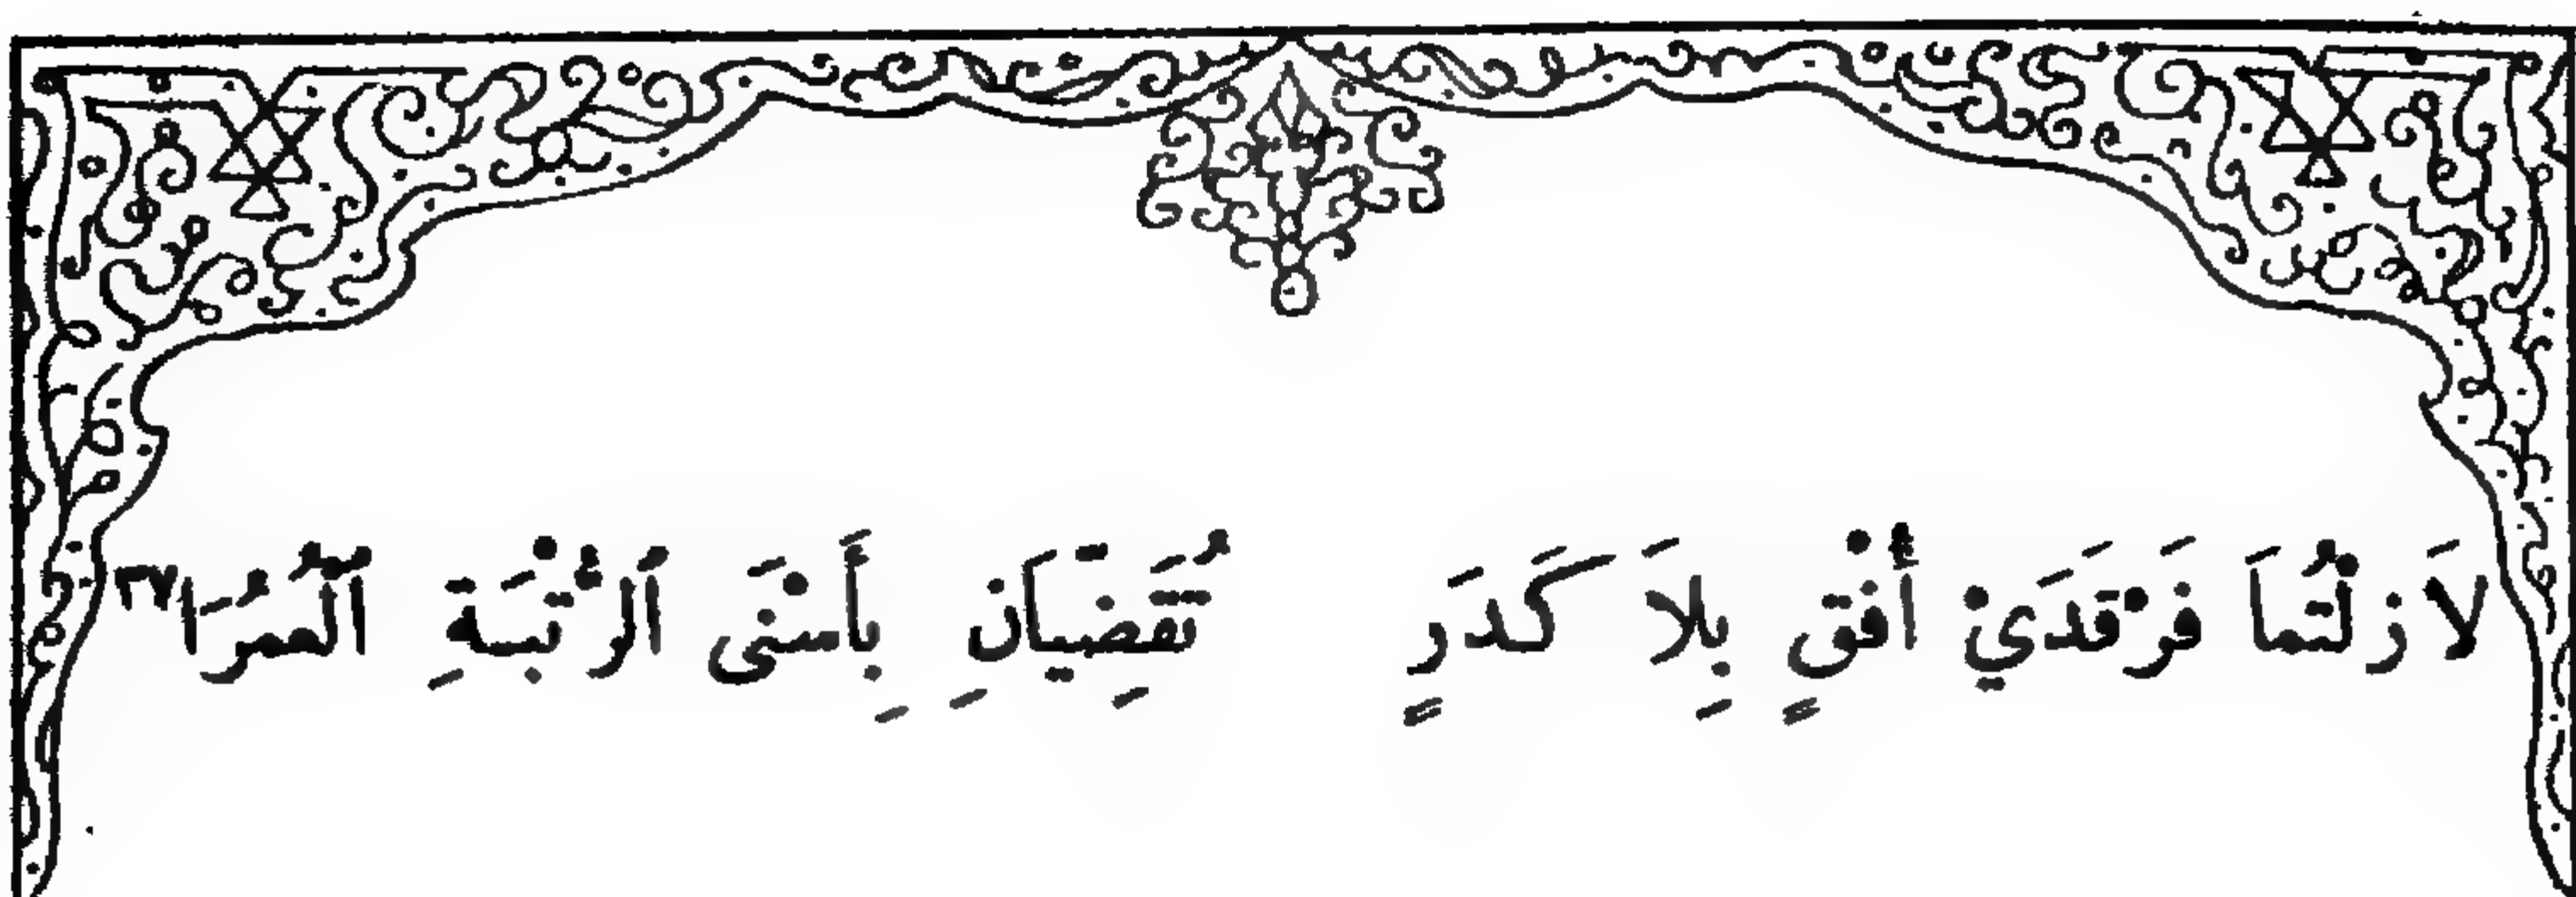 لَا زِلْتُمَا فَرْقَدَيْ أُفْقٍ بِلَا كَدَرٍ تُقَضِّيَانِ بِأَسْنَى ٱلرُّتْبَةِ ٱلْعُمُرَا ٣٧